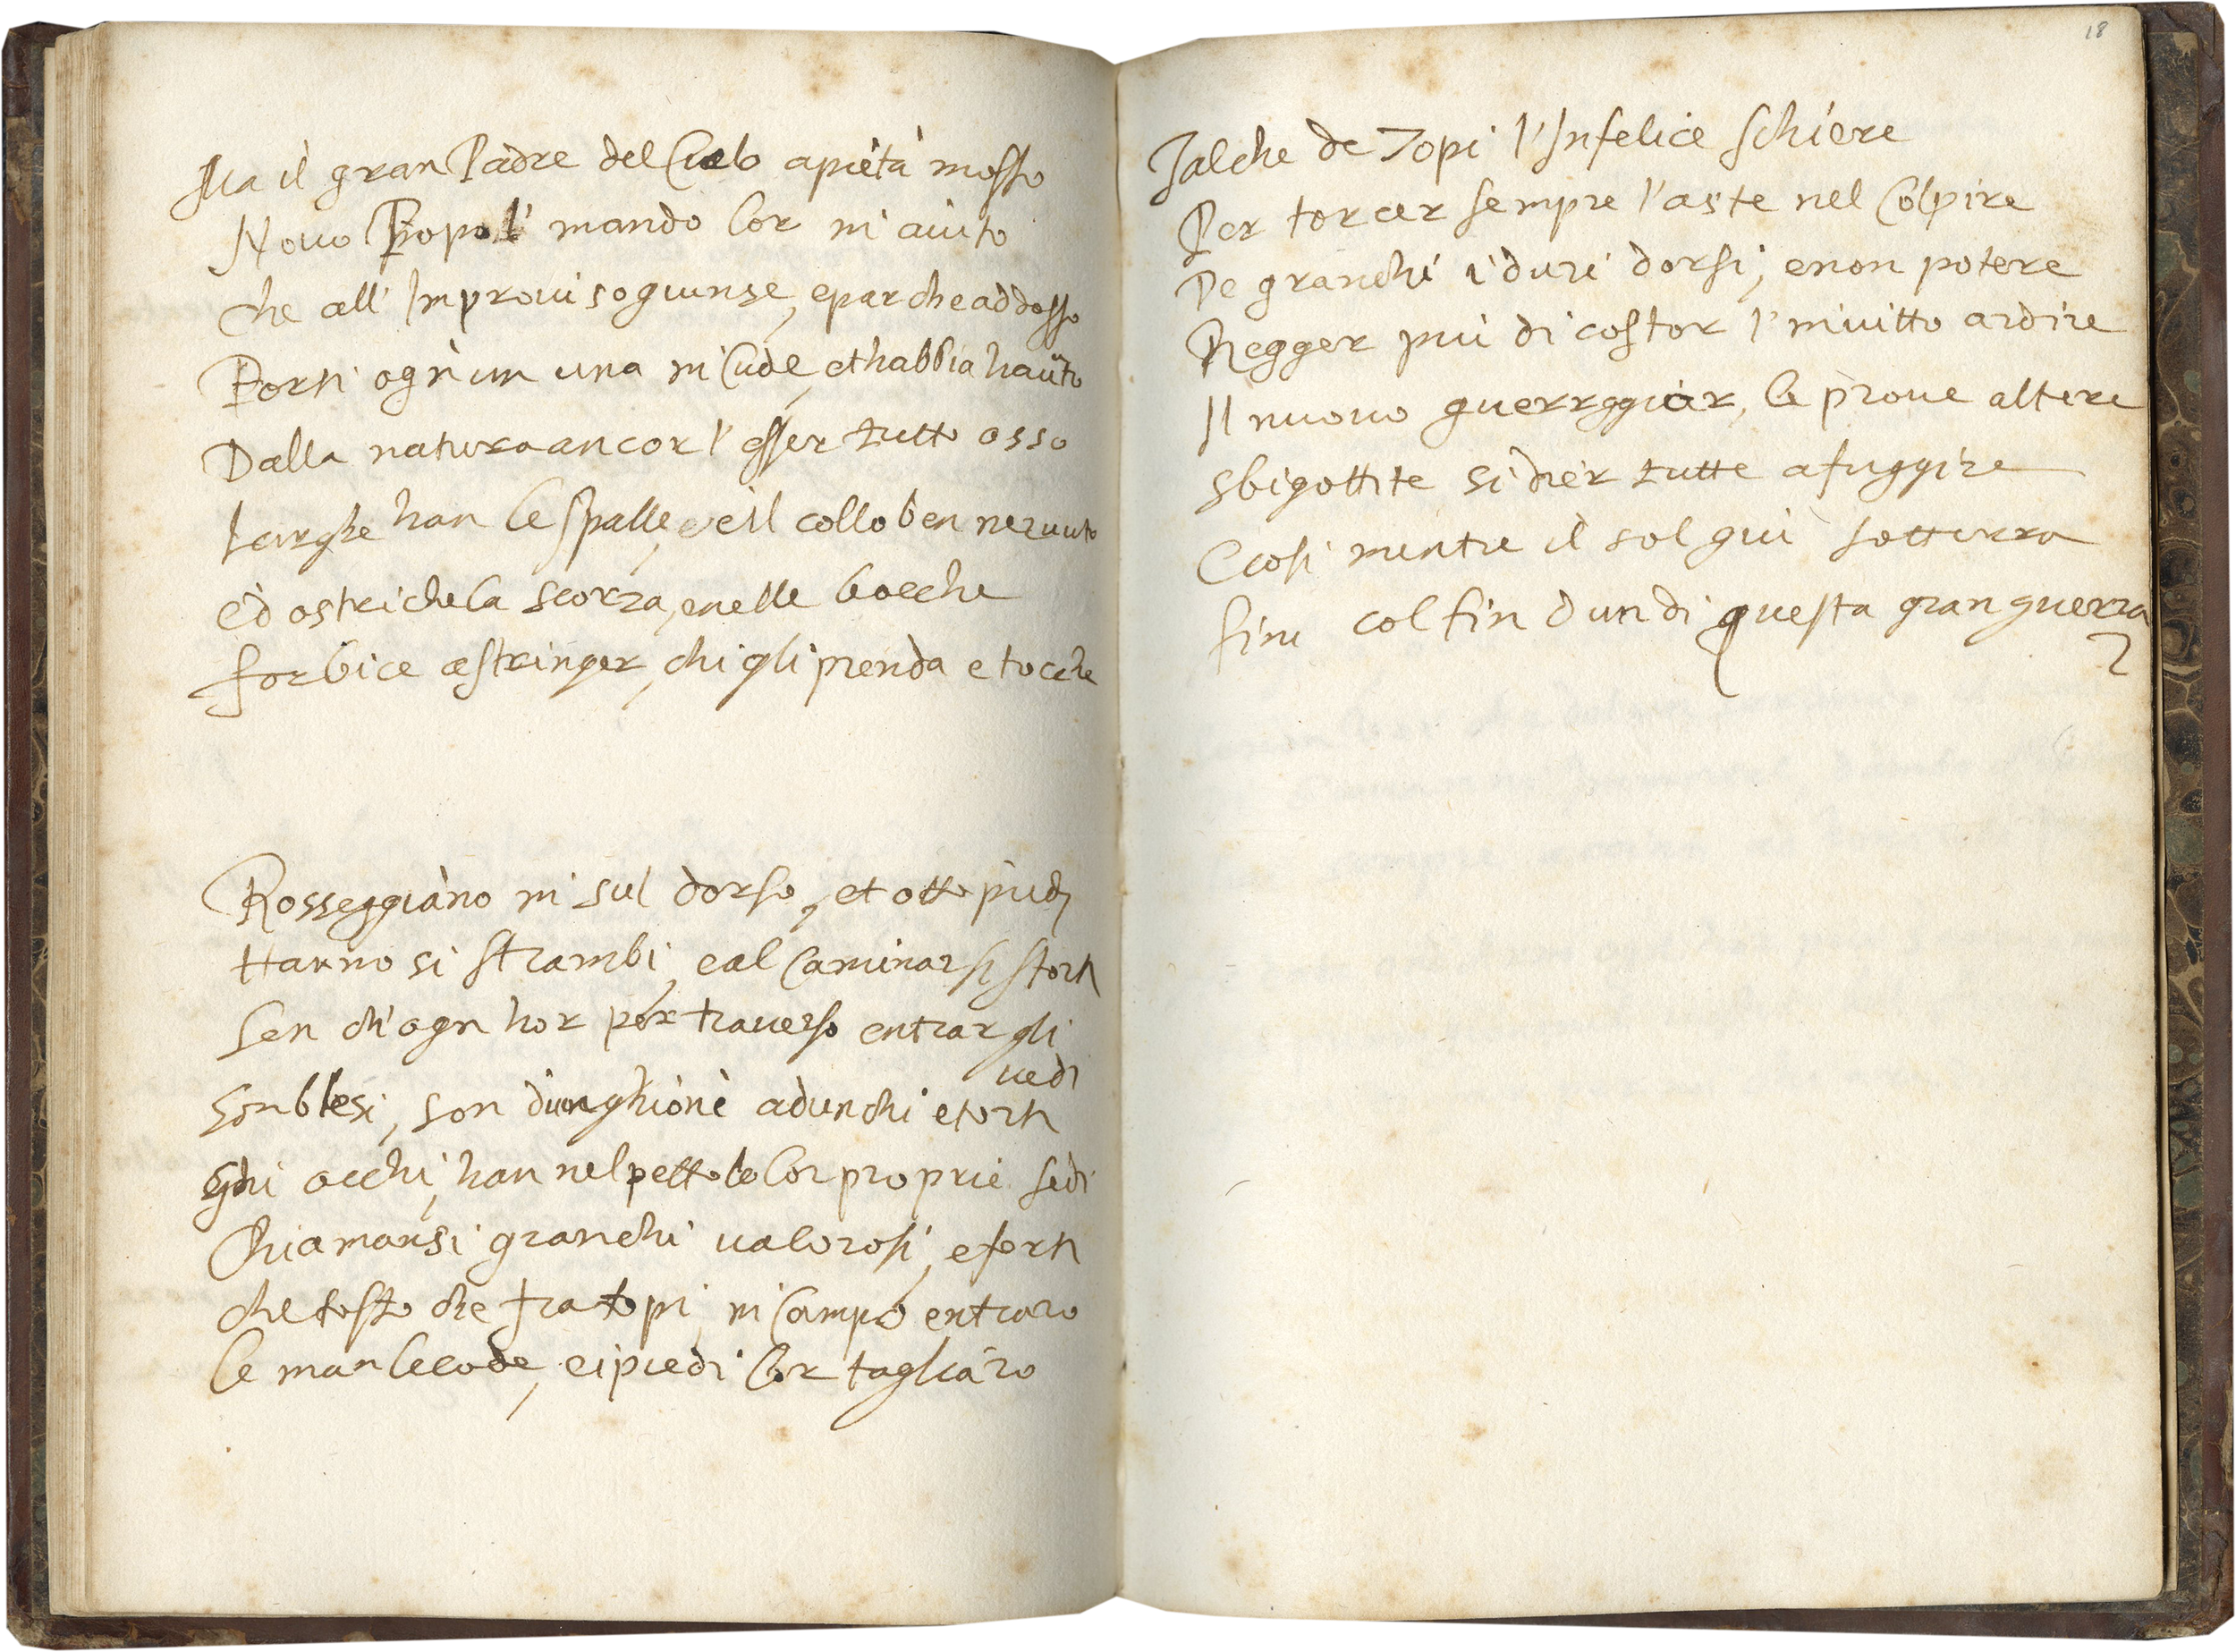 Ma il gran Padre del Cielo a pietà mosso
Nouo Popol' mando lor in aiuto
che all' Improuiso giunse, e par che addosso
Porti ogn'un una in Cude, et habbia hauuto
Dalla natura ancor l'esser tutto osso
Larghe han le spalle, e il collo ben neruuto
E d ostriche la scorza, e nelle bocche
forbice a stringer, chi gli prenda e tocche
Rosseggiano in sul dorso, et otto piedi
Hanno si strambi, e al Caminar si storti
Sen ch'ogn hor per trauerso entrar gli
uedi
Son blesi, son d'unghioni adunchi e torti
Ghi occhi, han nel petto le lor proprie sedi
Chiamansi granchi ualorosi, e forti
che tosto che fra topi, in Campo entraro
le man le code, e i piedi lor tagliaro
18
Talche de Topi l'Infelice schiere
Per torcer sempre l'aste nel Colpire
De granchi i duri dorsi, e non potere
Regger più di costor l'inuitto ardire
Il nuouo guerreggiar, le proue altere
sbigottite si dier tutte a fuggire
E cosi mentre il sol giu sotterra
fini col fin d un di questa gran guerra